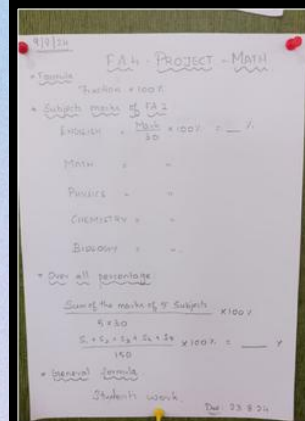 9/8/24
FA 4 - PROJECT - MATH
* Formula
Fraction × 100%
* Subject marks of FA 2
ENGLISH = Mark/30 × 100% = __ %
MATH " "
PHYSICS " "
CHEMISTRY " "
BIOLOGY " "
* Over all percentage
Sum of the marks of 5 Subjects
5 × 30
× 100%
S1 + S2 + S3 + S4 + S5
150
× 100% = ___ %
* General formula
Students work.
Due: 23.8.24